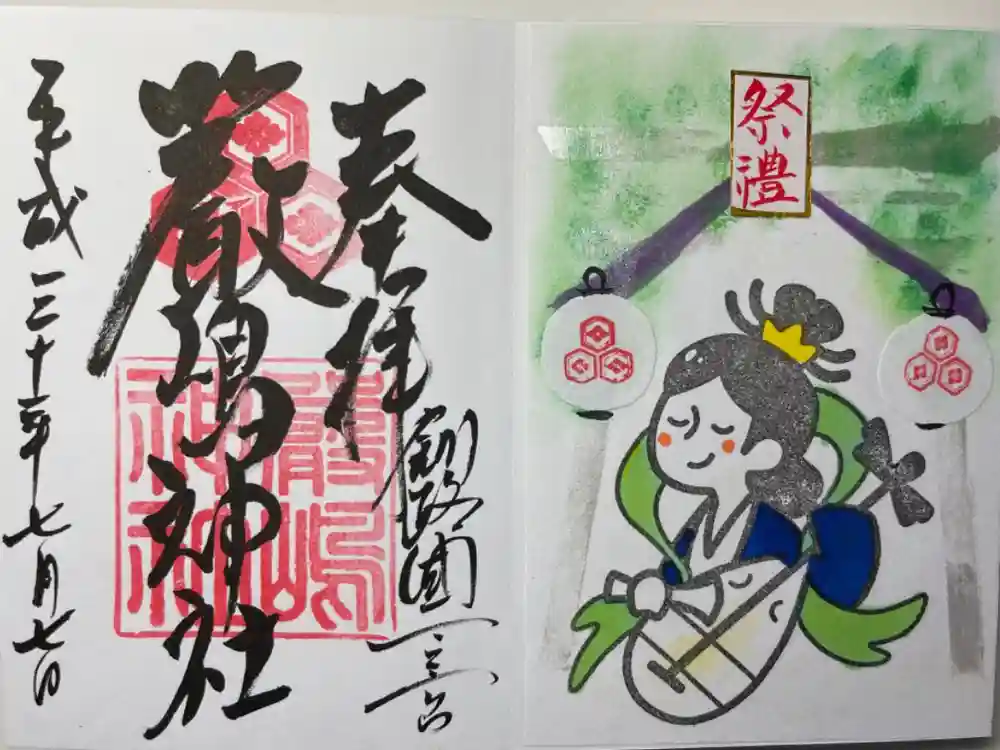 奉拝
釧路國一之宮
厳嶋神社
嚴嶋
神社
平成三十年七月七日
祭禮